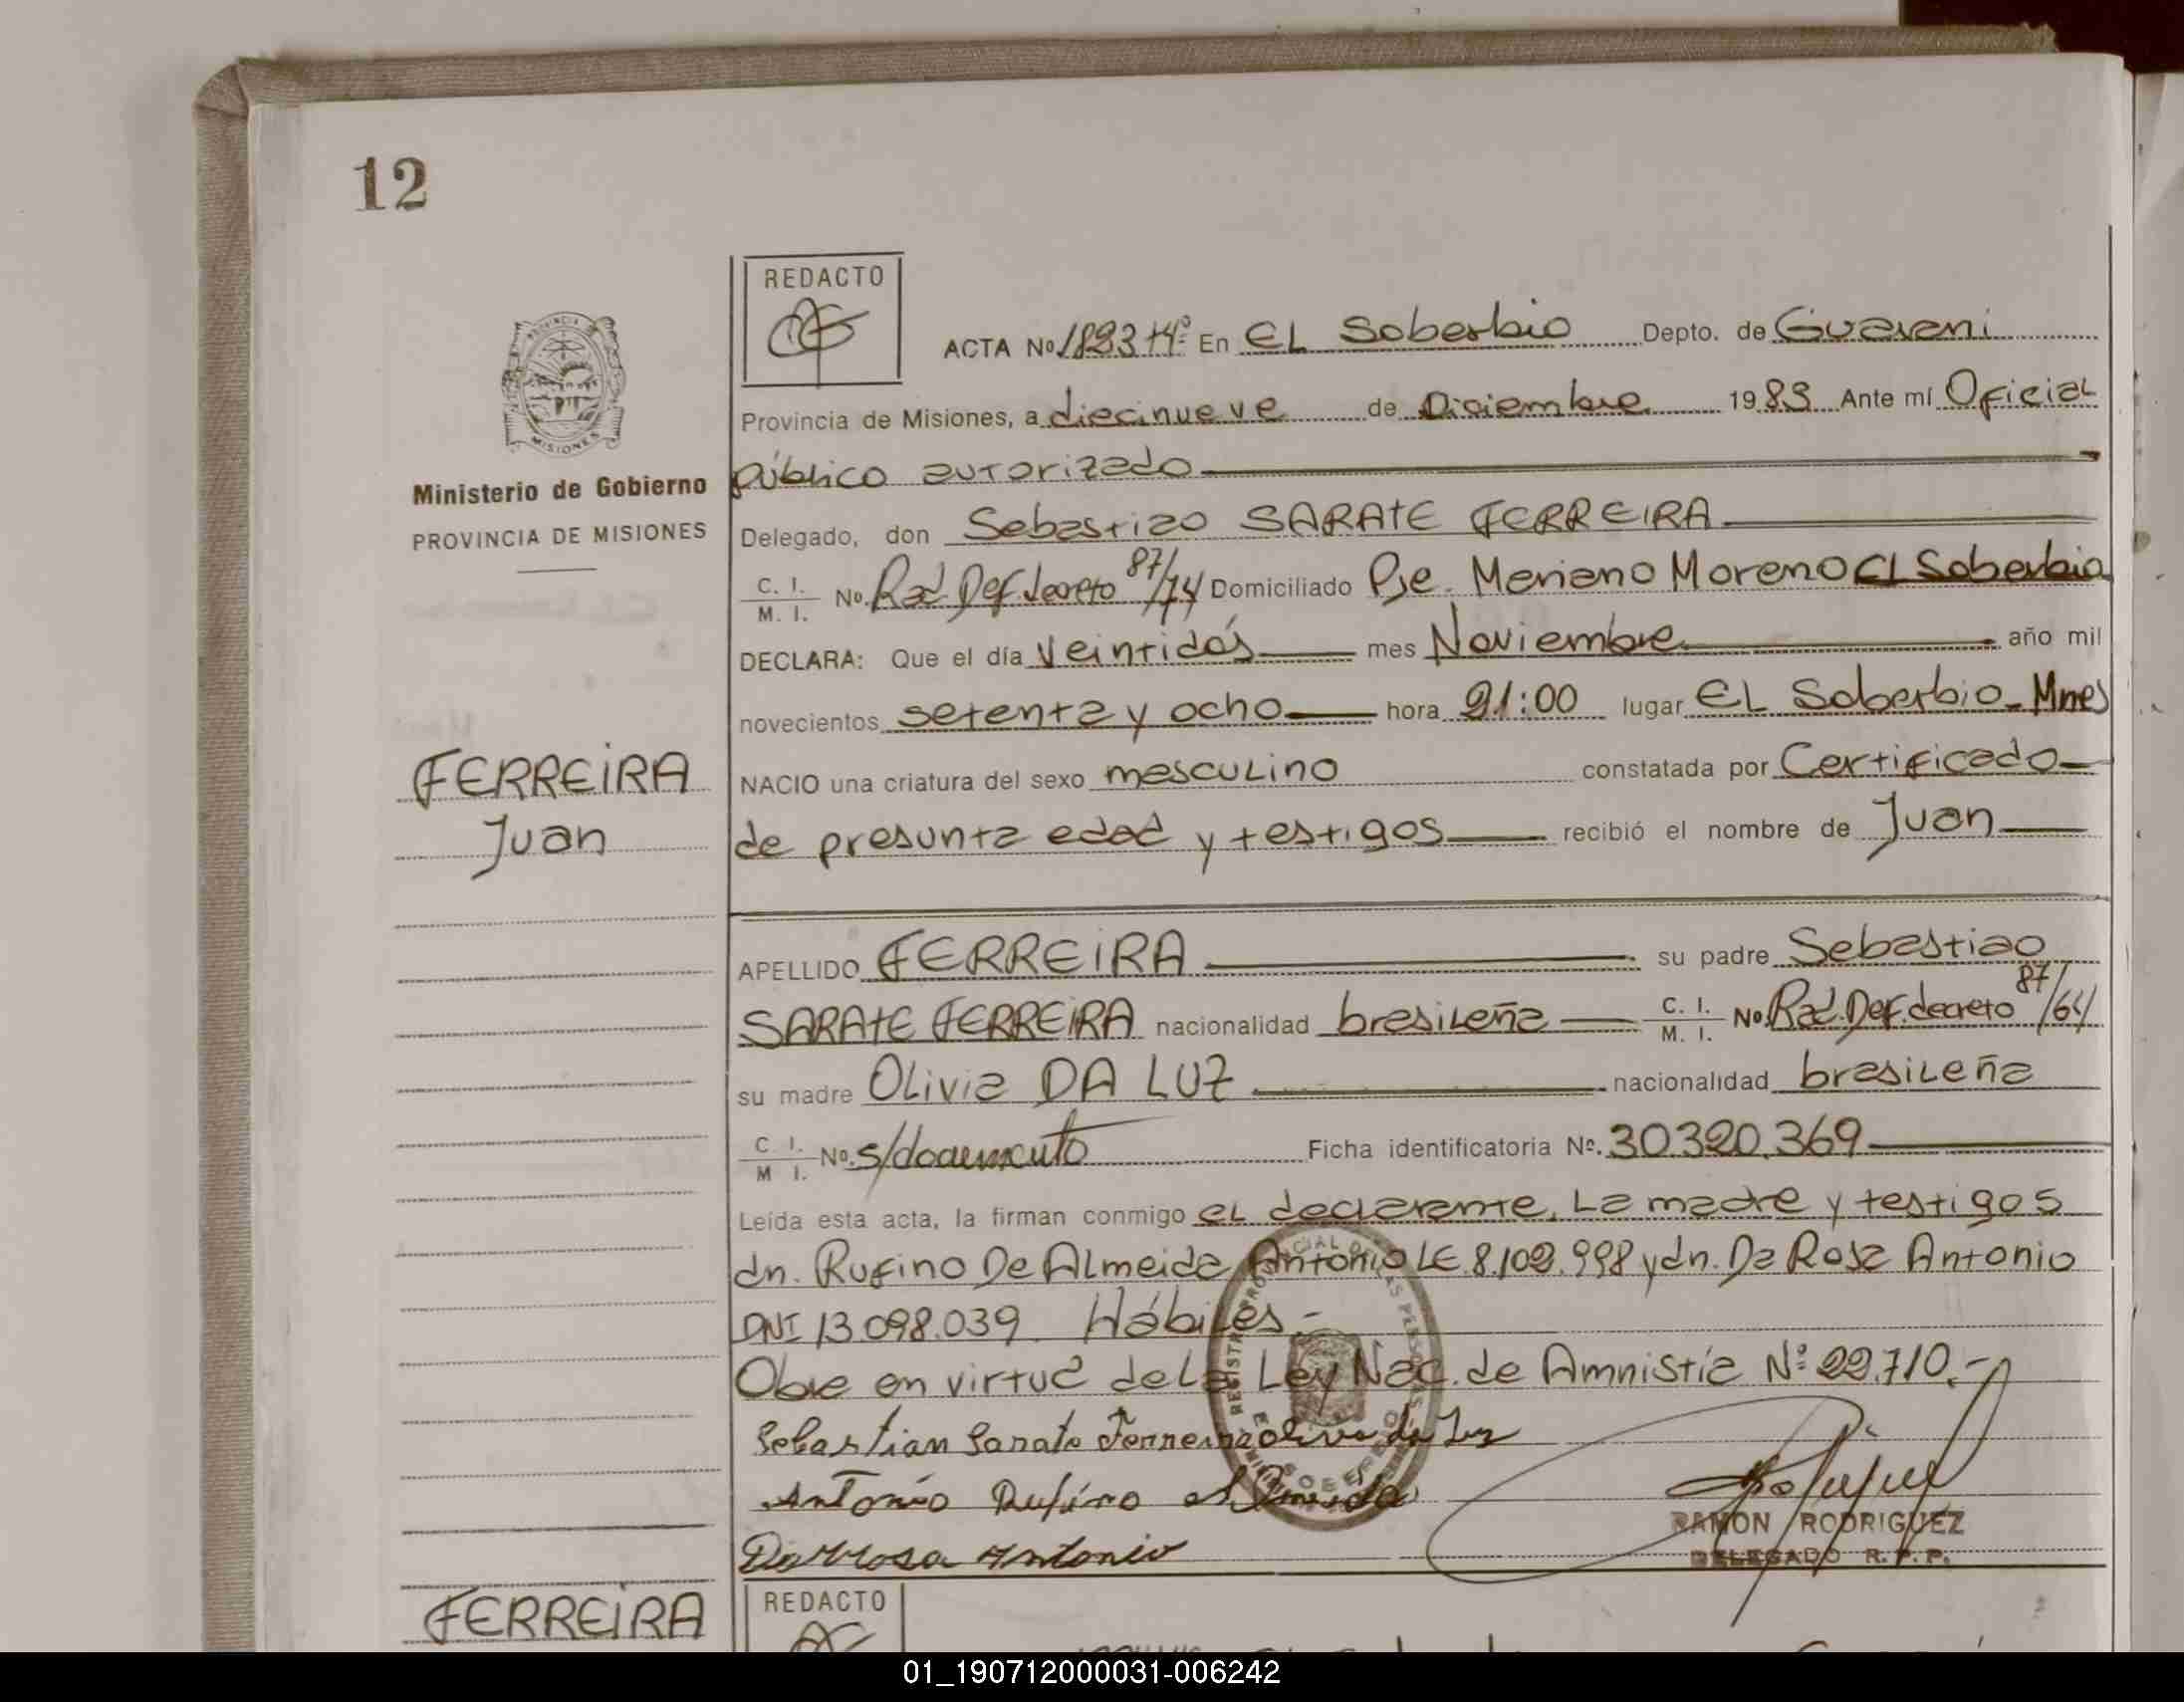 12
REDACTO
ACTA No 1823 Tº4º En EL Soberbio Depto. de Guarani
Provincia de Misiones, a diecinueve de Diciembre 1983 Ante mí Oficial
público autorizado
Ministerio de Gobierno
PROVINCIA DE MISIONES
Delegado, don Sebastiao SARATE FERREIRA
C. I. M. I. No. Rad. Def. decreto 87/74 Domiciliado Pje. Mariano Moreno El Soberbio
DECLARA: Que el día veintidós mes Noviembre año mil
novecientos setenta y ocho hora 21:00 lugar EL Soberbio - Mnes
NACIO una criatura del sexo masculino constatada por Certificado
de presunta edad y testigos recibió el nombre de Juan
FERREIRA
Juan
APELLIDO FERREIRA su padre Sebastiao
SARATE FERREIRA nacionalidad brasileña C. I. M. I. No. Rad. Def. decreto 87/64
su madre Olivia DA LUZ nacionalidad brasileña
C. I. M. I. No. s/documento Ficha identificatoria No. 30320.369
Leída esta acta, la firman conmigo el declarante, La madre y testigos
dn. Rufino De Almeida Antonio LE 8.102.998 y dn. Da Rosa Antonio
DNI 13.098.039. Hábiles.-
Obre en virtud de la Ley Nac. de Amnistía Nº 22.710.-
Sebastian Sarate Ferreira Oliva da Luz
Antonio Rufino
Darrosa Antonio
RAMON RODRIGUEZ
DELEGADO R. P. P.
FERREIRA
REDACTO
01_190712000031-006242